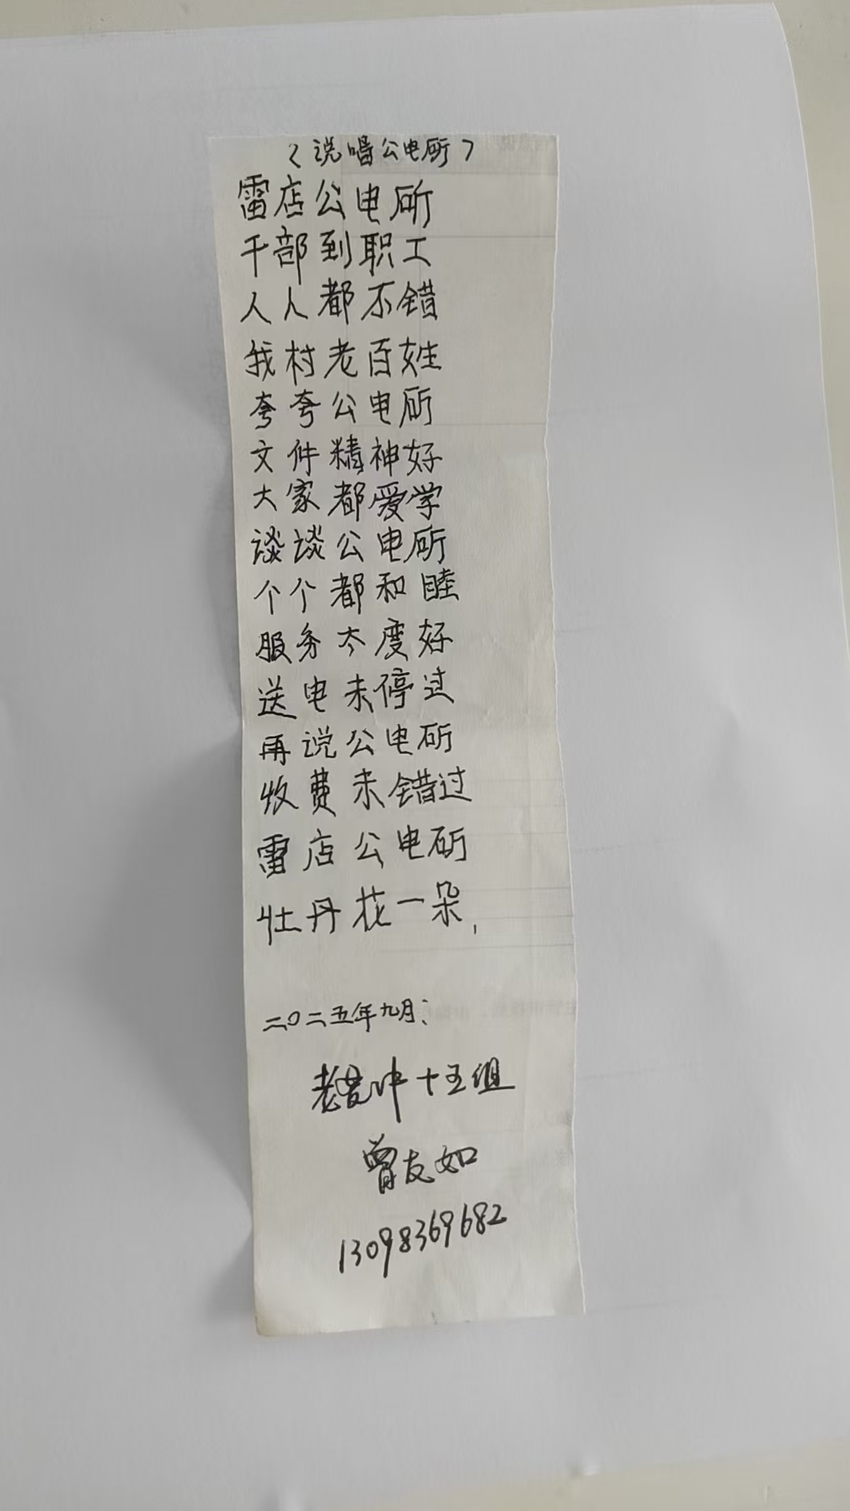 〈说唱公电所〉
雷店公电所
干部到职工
人人都不错
我村老百姓
夸夸公电所
文件精神好
大家都爱学
谈谈公电所
个个都和睦
服务太度好
送电未停过
再说公电所
收费未错过
雷店公电所
牡丹花一朵,
二〇二五年九月:
十五组
曾友如
13098369682